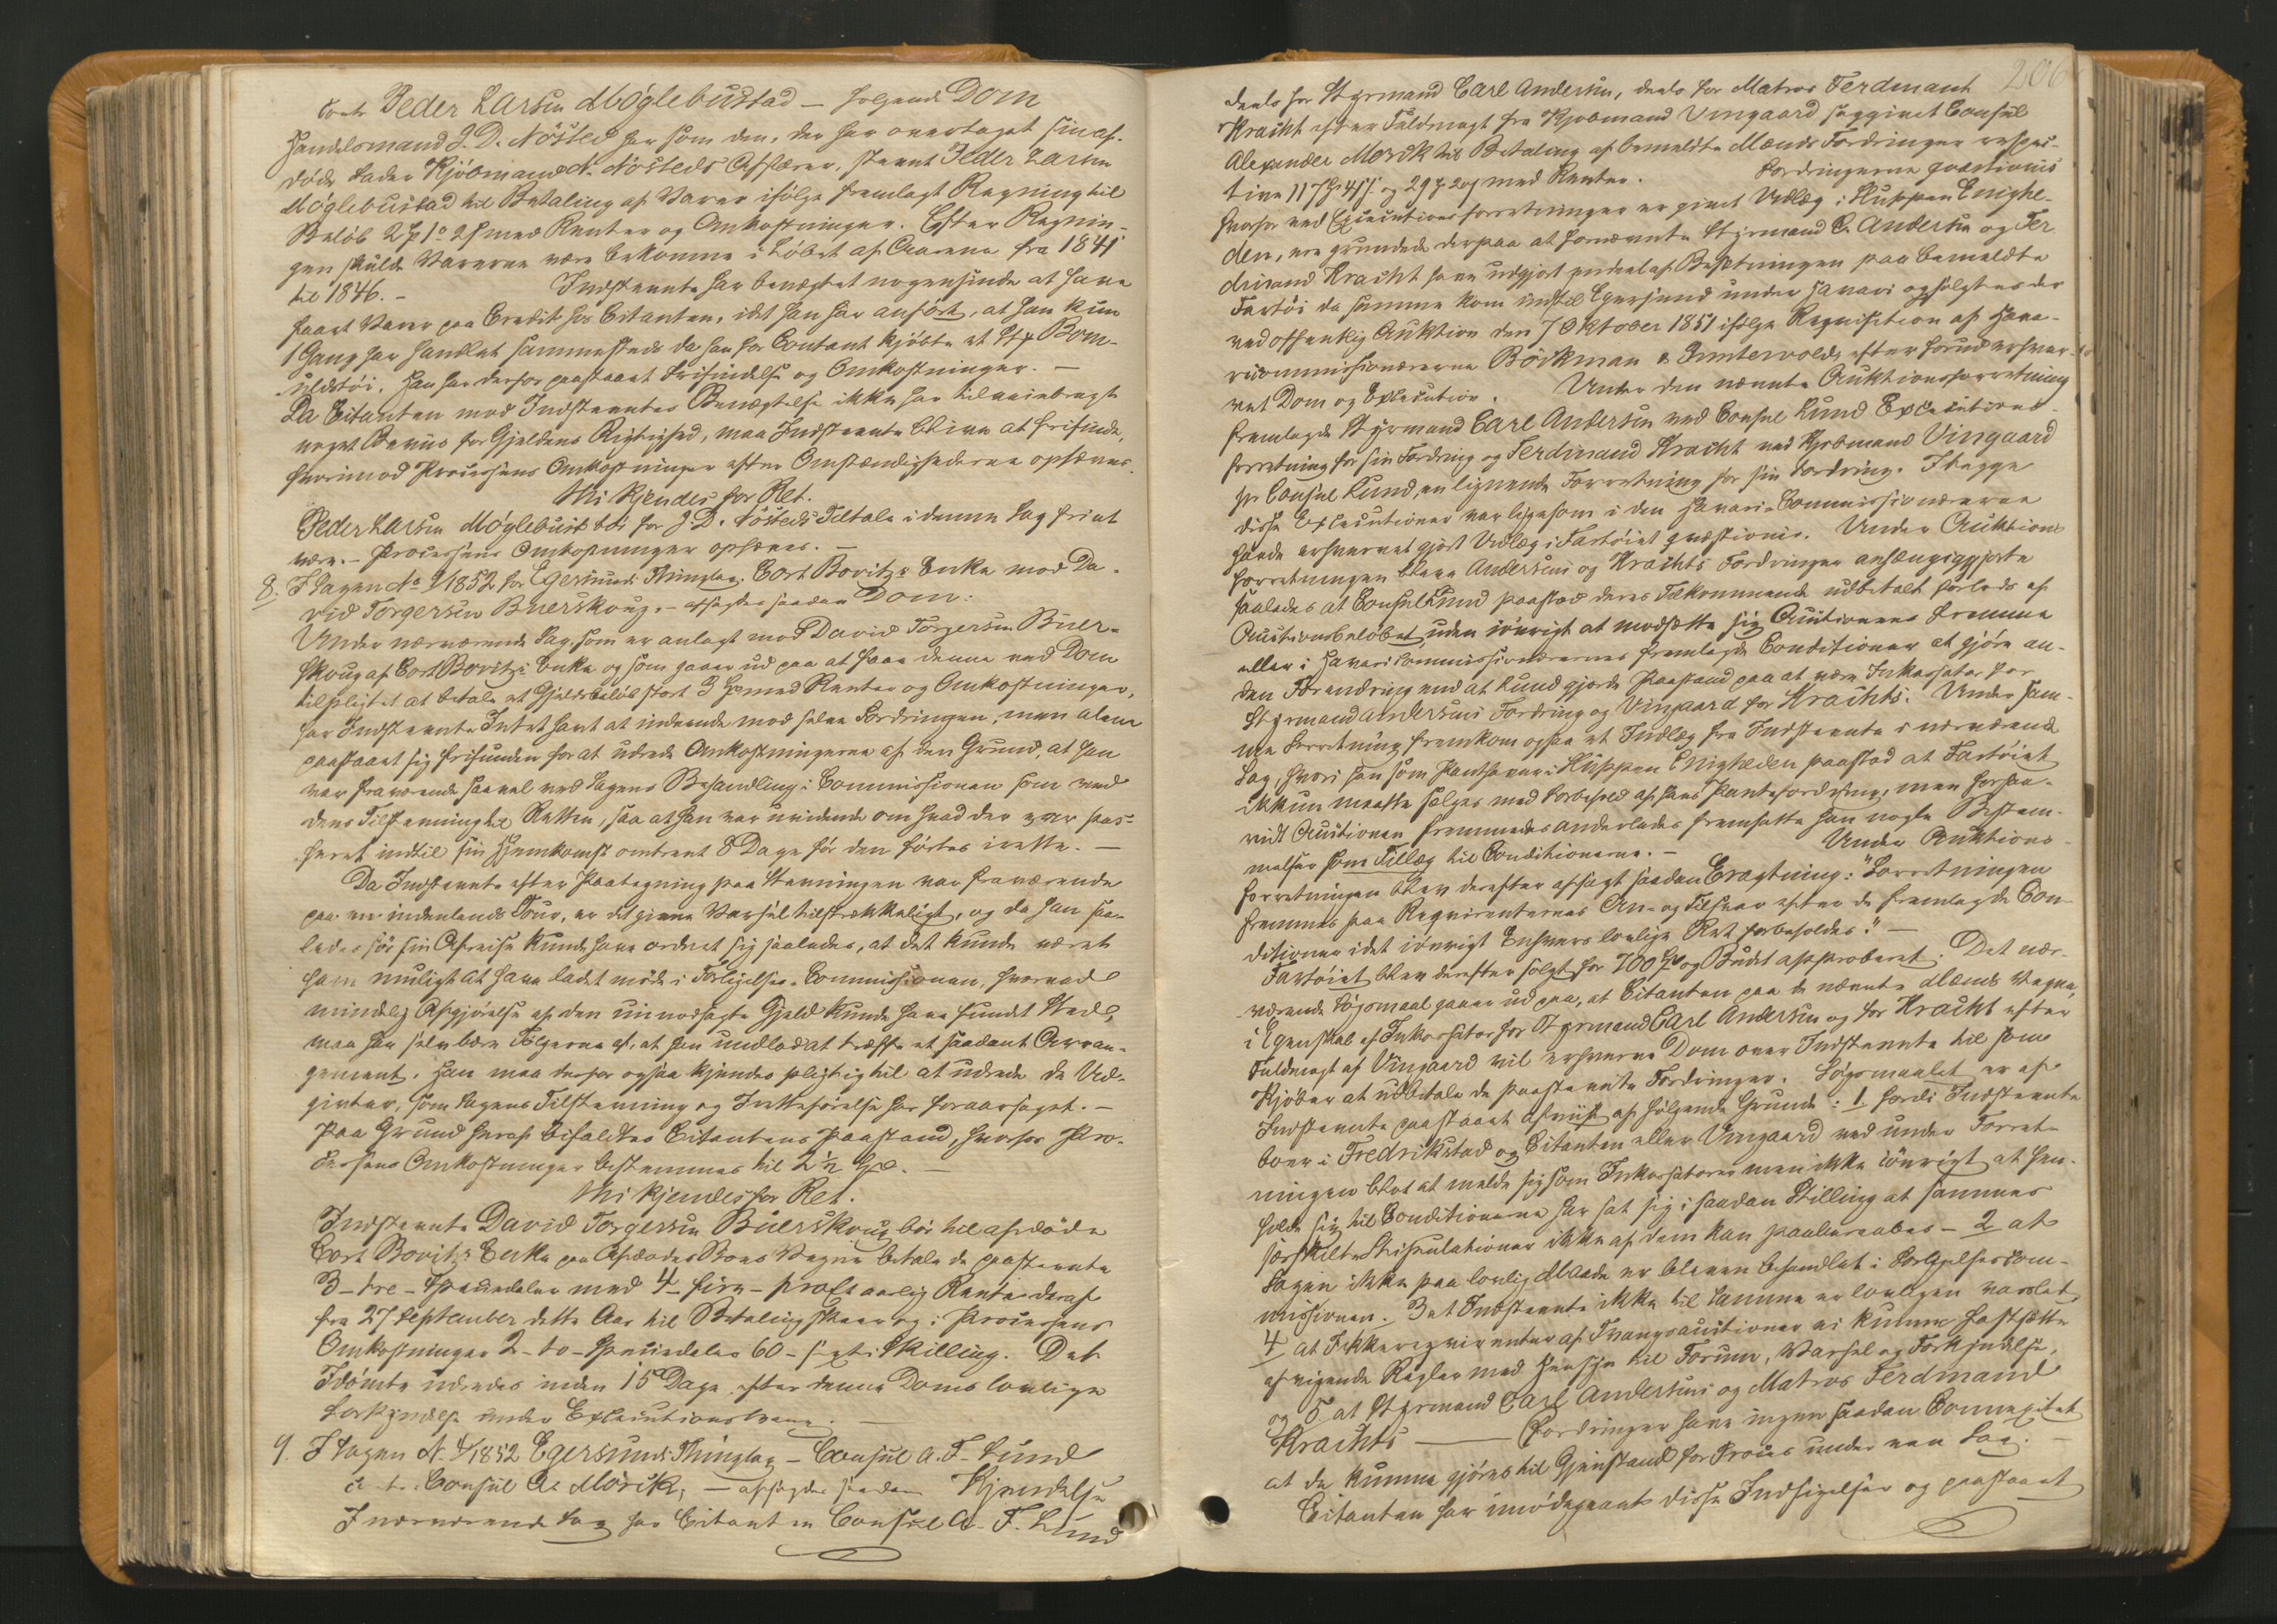 Peder Larsen Møglebustad – følgende Dom
Handelsmand J. D. Nösted har som den, der har overtaget sin af-
døde Fader Kjöbmand N. Nösteds Affærer, stevnt Peder Larsen
Møglebustad til Betaling af Varer ifølge fremlagt Regning til
Beløb 2 1 2 med Renter og Omkostninger. Efter Regnin-
gen skulde Varerne være bekomne i Løbet af Aarene fra 1841
til 1846. – Indstevnte har benægtet nogensinde at have
faaet Varer paa Credit hos Citanten, idet han har anført, at han kun
1 Gang har handlet sammesteds da han for Contant kjøbte et Bom-
uldstøi. Han har derfor paastaaet Frifindelse og Omkostninger. –
Da Citanten mod Indstevntes Benægtelse ikke har tilveiebragt
noget Beviis for Gjeldens Rigtighed, maa Indstevnte blive at frifinde,
hvorimod Processens Omkostninger efter Omstændighederne ophæves.
Thi kjendes for Ret.
Peder Larsen Møglebust bør for J. D. Nösteds Tiltale i denne Sag fri at
være. – Processens Omkostninger ophæves. –
8. I Sagen No 1852 for Egersunds Thinglag. Cort Bovitz's Enke mod Da-
vid Torgersen Buerskoug. – afsagdes saadan Dom:
Under nærværende Sag, som er anlagt mod David Torgersen Buer-
skoug af Cort Bovitz's Enke og som gaaer ud paa at faae denne ved Dom
tilpligtet at betale et Gjeldsbeløb stort 3 med Renter og Omkostninger,
har Indstevnte Intet havt at indvende mod selve Fordringen, men alene
paastaaet sig frifunden for at udrede Omkostningerne af den Grund, at han
var fraværende saavel ved Sagens Behandling i Commissionen som ved
dens Tilstevning til Retten, saa at han var uvidende om hvad der var pas-
seret indtil sin Hjemkomst omtrent 8 Dage før den førtes irette. –
Da Indstevnte efter Paategning paa Stevningen var fraværende
paa en indenlands Tour, er det givne Varsel tilstrækkeligt, og da han saa-
ledes før sin Afreise kunde have ordnet sig saaledes, at det kunde været
ham muligt at have ladet møde i Forligelses-Commissionen, hvorved
mindelig Afgjørelse af den uimodsagte Gjeld kunde have fundet Sted,
maa han selv bære Følgerne af, at han undlod at træffe et saadant Arran-
gement. Han maa derfor ogsaa kjendes pligtig til at udrede de Ud-
givter, som Sagens Tilstevning og Irettеførelse har foraarsaget. –
Paa Grund heraf bifaldtes Citantens Paastand, hvorfor Pro-
cessens Omkostninger bestemmes til 2 ½ Spd. –
Thi kjendes for Ret.
Indstevnte David Torgersen Buerskoug bør til afdøde
Cort Bovitz's Enke paa Afdødes Boes Vegne betale de paastevnte
3 – tre – Speciedaler med 4 – fire – procent aarlig Rente deraf
fra 27 September dette Aar til Betaling skeer og i Processens
Omkostninger 2 – to – Speciedaler 60 – sexti Skilling. Det
Idømte udredes inden 15 Dage efter denne Doms lovlige
Forkyndelse under Executions tvang. –
9. I Sagen N. 4/1852 Egersunds Thinglag – Consul A. F. Lund
Consul A. Mörck, – afsagdes saadan Kjendelse
I nærværende Sag har Citanten Consul A. F. Lund
206
deels for Styrmand Carl Andersen, deels for Matros Ferdinant
Kracht efter Fuldmagt fra Kjøbmand Vingaard søggivet Consul
Alexander Mørck til Betaling af bemeldte Mænds Fordringer respec-
tive 117 45 og 29 20 med Renter. Fordringerne qvæstionis
hvorfor ved Executionsforretninger er givet Udlæg i Skuppen Enighe-
den, ere grundede derpaa at fornævnte Styrmand C. Andersen og Fer
dinand Kracht have udgjort endeel af Besætningen paa bemeldte
Fartöi da samme kom ind til Egersund under Havari og solgtes der
ved offentlig Auktion den 7 Oktober 1851 ifølge Reqvisition af Hava-
ricommissionærerne Böckman & Puntervold, efter forud erhver-
vet Dom og Execution. Under den nævnte Auktionsforretning
fremlagde Styrmand Carl Andersen ved Consul Lund Executions-
forretning for sin Fordring og Ferdinand Kracht ved Kjøbmand Vingaard
pr Consul Lund, en lignende Forretning for sin Fordring. I begge
disse Executioner var ligesom i den Havari-Commissionærerne
havde erhvervet gjort Udlæg i Fartøiet qvæstionis. Under Auktions
forretningen bleve Andersens og Krachts Fordringer anhængiggjorte
saaledes at Consul Lund paastod deres Tilkommende udbetalt forlods af
Auctionsbeløbet, uden iøvrigt at modsætte sig Auctionens Fremme
eller i Havaricommissionærernes fremlagte Conditioner at gjøre an-
den Forandring end at Lund gjorde Paastand paa at være Inkassator for
Styrmand Andersens Fordring og Vingaard for Krachts. Under sam-
me Forretning fremkom ogsaa et Indlæg fra Indstevnte i nærværende
Sag, hvori han som Panthaver i Skuppen Enigheden paastod at Fartøiet
ikkun maatte sælges med Forbehold af hans Pantefordring, men forsaa-
vidt Auctionen fremmedes anderledes fremsatte han nogle Bestem-
melser som Tillæg til Conditionerne. – Under Auktions-
forretningen blev derefter afsagt saadan Eragtning: "Forretningen
fremmes paa Reqvirenternes An- og Tilsvar efter de fremlagde Con-
ditioner idet iøvrigt Enhvers lovlige Ret forbeholdes." –
Fartøiet blev derefter solgt for 700 og Budet approberet. Det nær-
værende Søgsmaal gaaer ud paa, at Citanten paa de nævnte Mænds Vegne,
i Egenskab af Inkassator for Styrmand Carl Andersen og for Kracht efter
Fuldmagt af Vingaard vil erhverve Dom over Indstevnte til som
Kjøber at udbetale de paastevnte Fordringer. Søgsmaalet er af
Indstevnte paastaaet afviist af følgende Grunde: 1. fordi Indstevnte
boer i Fredrikstad og Citanten eller Vingaard ved under Forret-
ningen blot at melde sig som Inkassatorer men ikke iøvrigt at hen-
holde sig til Conditionerne har sat sig i saadan Stilling at sammes
særskilte Stipulationer ikke af dem kan paaberaabes – 2 at
Sagen ikke paa lovlig Maade er bleven behandlet i Forligelsescom-
missionen. 3 at Indstevnte ikke til samme er lovligen varslet
4 at Ikkereqvirenter af Tvangsauctioner ei kunne fastsætte
afvigende Regler med Hensyn til Forum, Varsel og Forkyndelse,
og 5 at Styrmand Carl Andersens og Matros Ferdinand
Krachts — Fordringer have ingen saadan Connexitet
at de kunne gjøres til Gjenstand for Proces under een Sag. –
Citanten har imødegaaet disse Indsigelser og paastaaet